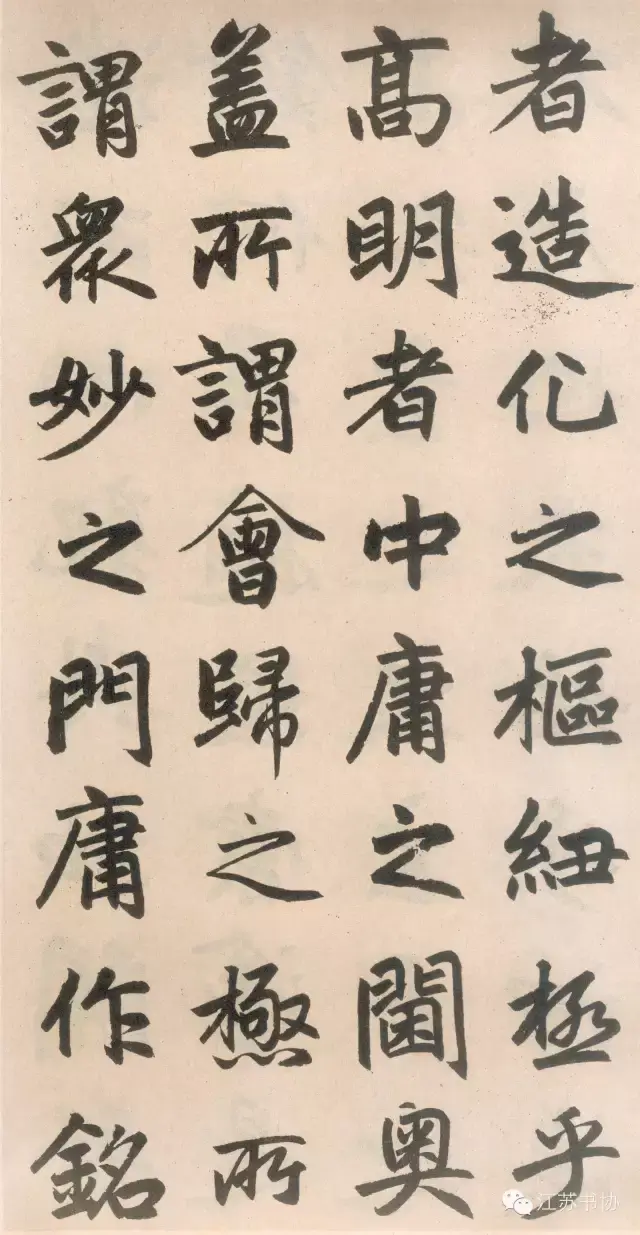 者造化之樞紐極乎
高明者中庸之閫奧
蓋所謂會歸之極所
謂衆妙之門庸作銘
江苏书协